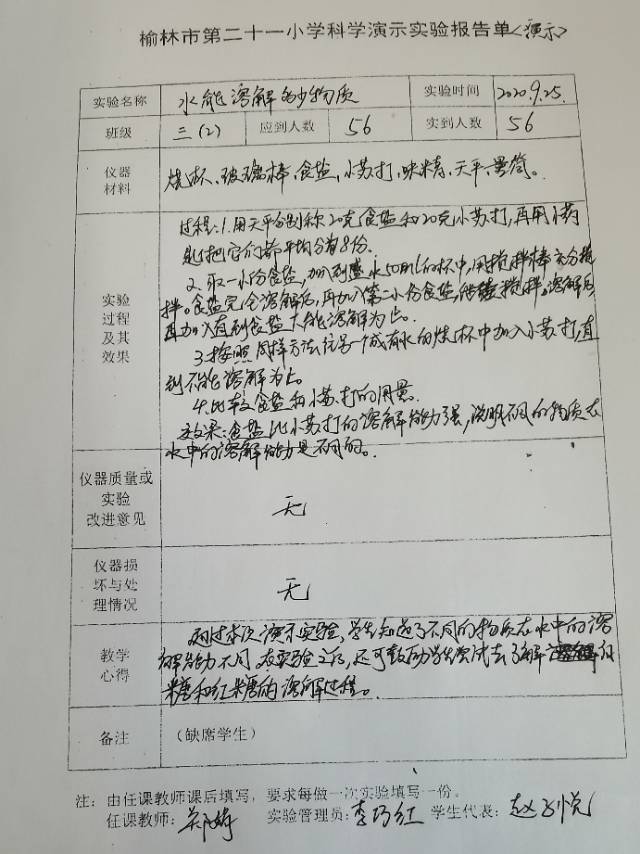 榆林市第二十一小学科学演示实验报告单<演示>
实验名称 水能溶解多少物质 实验时间 2020.9.25.
班级 三(2) 应到人数 56 实到人数 56
仪器
材料
烧杯、玻璃棒、食盐、小苏打、味精、天平、量筒。
实验
过程
及其
效果
过程:1.用天平分别称20克食盐和20克小苏打,再用小药
匙把它们都平均分省8份.
2.取一小份食盐,加入到盛水50ml的杯中,用搅拌棒充分搅
拌。食盐完全溶解后,再加入第二小份食盐,继续搅拌。溶解后
再加入直到食盐不能溶解为止。
3.按照同样方法往另一个成有水的烧杯中加入小苏打,直
到不能溶解为止。
4.比较食盐和小苏打的用量。
效果:食盐比小苏打的溶解能力强,说明不同的物质在
水中的溶解能力是不同的。
仪器质量或
实验
改进意见
无
仪器损
坏与处
理情况
无
教学
心得
通过本次演示实验,学生知道了不同的物质在水中的溶
解能力不同,在实验之后,还可鼓励学生尝试去了解白
糖和红糖的溶解过程。
备注 (缺席学生)
注:由任课教师课后填写,要求每做一次实验填写一份。
任课教师: 实验管理员:李巧红 学生代表:赵子悦